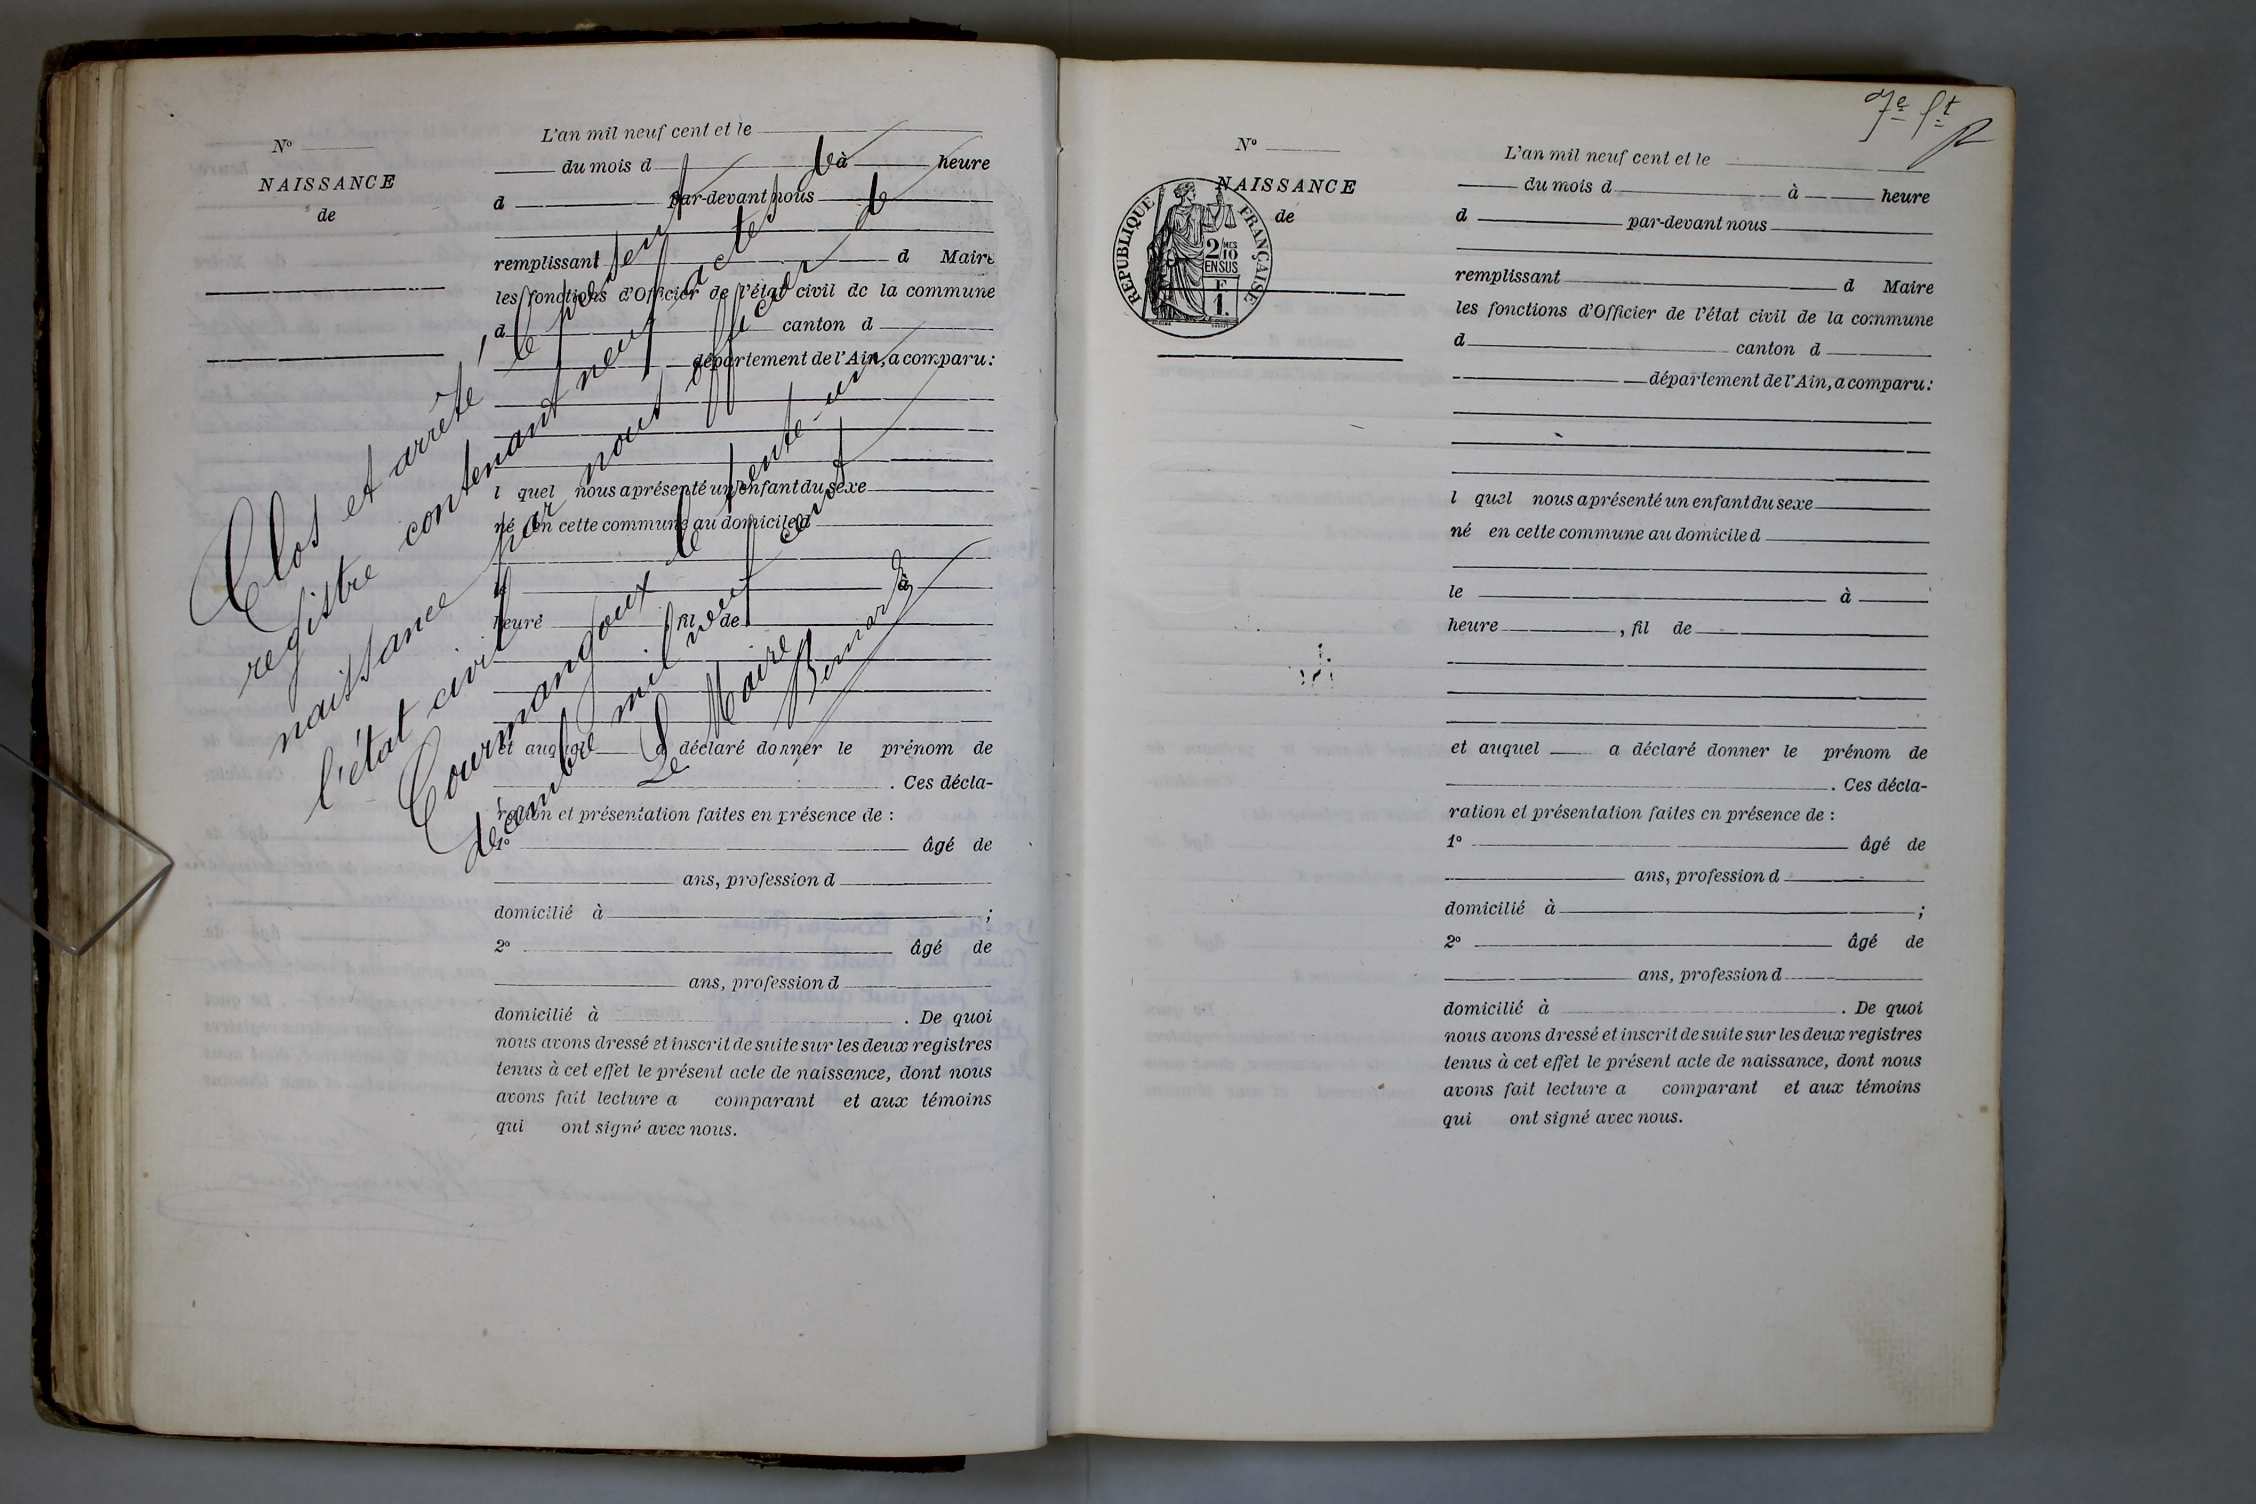 N°
NAISSANCE
de
L'an mil neuf cent et le
du mois d à heure
d par-devant nous
remplissant d Maire
les fonctions d'Officier de l'état civil de la commune
d canton d
département de l'Ain, a comparu:
l quel nous a présenté un enfant du sexe
né en cette commune au domicile d
le à
heure , fil de
et auquel a déclaré donner le prénom de
. Ces décla-
ration et présentation faites en présence de :
1° âgé de
ans, profession d
domicilié à ;
2° âgé de
ans, profession d
domicilié à . De quoi
nous avons dressé et inscrit de suite sur les deux registres
tenus à cet effet le présent acte de naissance, dont nous
avons fait lecture a comparant et aux témoins
qui ont signé avec nous.
Clos et arrêté, le présent
registre contenant neuf actes de
naissance par nous officier de
l'état civil
Courmangoux le trente-un
décembre mil neuf cent
Le Maire
7e ft
N°
NAISSANCE
de
RÉPUBLIQUE FRANÇAISE
2/MES 10
EN SUS
F
1.
L'an mil neuf cent et le
du mois d à heure
d par-devant nous
remplissant d Maire
les fonctions d'Officier de l'état civil de la commune
d canton d
département de l'Ain, a comparu:
l quel nous a présenté un enfant du sexe
né en cette commune au domicile d
le à
heure , fil de
et auquel a déclaré donner le prénom de
. Ces décla-
ration et présentation faites en présence de :
1° âgé de
ans, profession d
domicilié à ;
2° âgé de
ans, profession d
domicilié à . De quoi
nous avons dressé et inscrit de suite sur les deux registres
tenus à cet effet le présent acte de naissance, dont nous
avons fait lecture a comparant et aux témoins
qui ont signé avec nous.